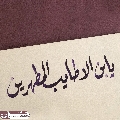 يابن الاطايب المطهرين